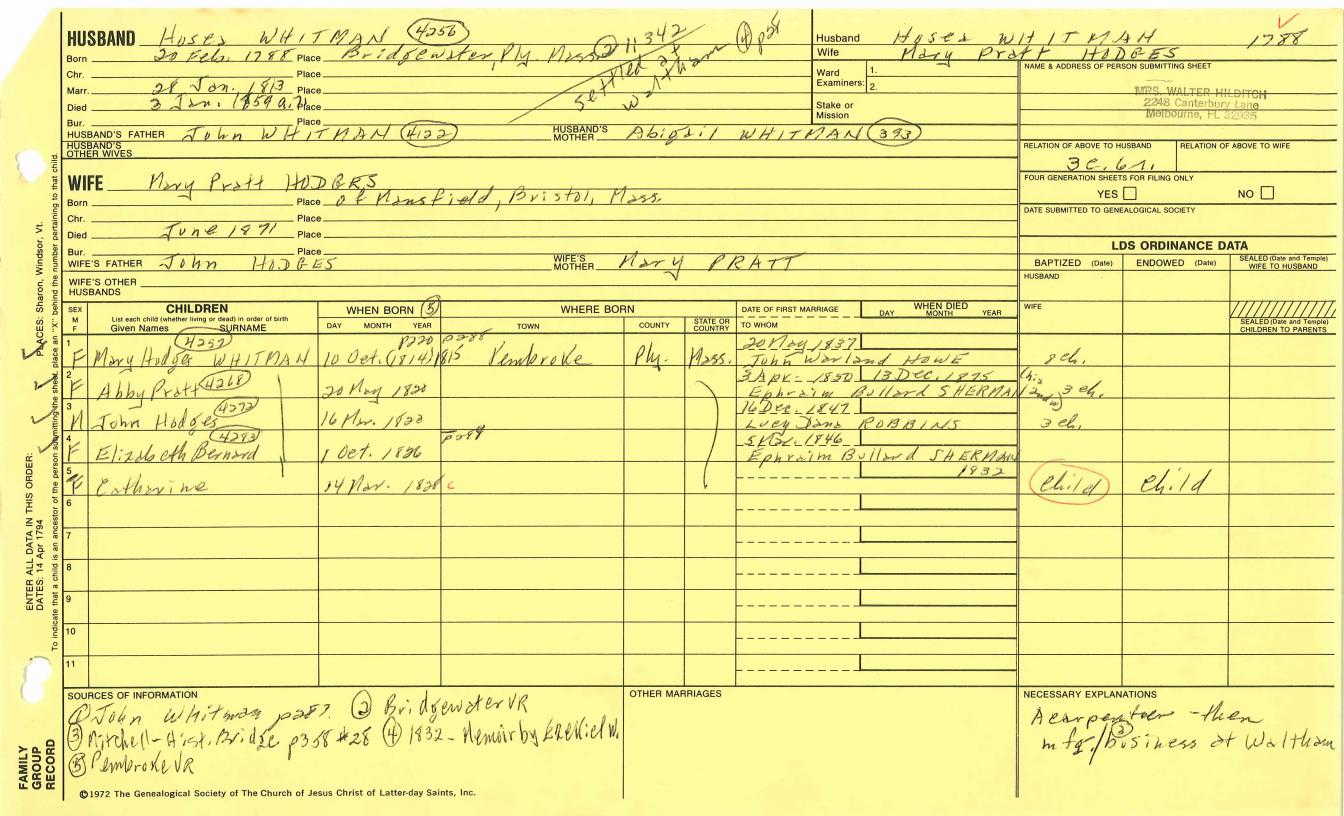 HUSBAND Hosea WHITMAN 4256
Born 20 Feb. 1788 Place Bridgewater, Ply. Mass. 2 11342 4 p28
Chr. Place settled at
Marr. 28 Jan. 1813 Place Waltham
Died 3 Jan. 1859 Place
Bur. Place
HUSBAND'S FATHER John WHITMAN 4122 HUSBAND'S MOTHER Abigail WHITMAN 393
HUSBAND'S OTHER WIVES
WIFE Mary Pratt HODGES
Born Place of Mansfield, Bristol, Mass.
Chr. Place
Died June 1871 Place
Bur. Place
WIFE'S FATHER John HODGES WIFE'S MOTHER Mary PRATT
WIFE'S OTHER HUSBANDS
Husband Hosea WHITMAN 1788
Wife Mary Pratt HODGES
Ward Examiners: 1.
2.
Stake or Mission
NAME & ADDRESS OF PERSON SUBMITTING SHEET
MRS. WALTER HILDITCH
2248 Canterbury Lane
Melbourne, FL 32935
RELATION OF ABOVE TO HUSBAND RELATION OF ABOVE TO WIFE
3c. 6r.
FOUR GENERATION SHEETS FOR FILING ONLY
YES NO
DATE SUBMITTED TO GENEALOGICAL SOCIETY
LDS ORDINANCE DATA
BAPTIZED (Date) ENDOWED (Date) SEALED (Date and Temple) WIFE TO HUSBAND
HUSBAND
WIFE
SEALED (Date and Temple) CHILDREN TO PARENTS
SEX M F CHILDREN WHEN BORN 5 WHERE BORN DATE OF FIRST MARRIAGE WHEN DIED
List each child (whether living or dead) in order of birth
Given Names SURNAME DAY MONTH YEAR TOWN COUNTY STATE OR COUNTRY TO WHOM DAY MONTH YEAR
4257 p220 p288 20 May 1837
1 F Mary Hodges WHITMAN 10 Oct. (1814) 1815 Pembroke Ply. Mass. John Warland HOWE 8 ch.
4268 3 Apr. 1850 13 Dec. 1875
2 F Abby Pratt 20 May 1820 Ephraim Bullard SHERMAN (his 2nd w) 3 ch.
4272 16 Dec. 1847
3 M John Hodges 16 Mar. 1822 Lucy Dana ROBBINS 3 ch.
4283 p289 5 Mar. 1846
4 F Elizabeth Bernard 1 Oct. 1826 Ephraim Bullard SHERMAN
1832
5 F Catharine 14 Mar. 1828 c child child
6
7
8
9
10
11
SOURCES OF INFORMATION
1 John Whitman p287. 2 Bridgewater VR
3 Mitchell - Hist. Bridge p358 #28 4 1832 - Memoir by Ezekiel W.
5 Pembroke VR
OTHER MARRIAGES
NECESSARY EXPLANATIONS
A carpenter - then
mfg. 3 business at Waltham
©1972 The Genealogical Society of The Church of Jesus Christ of Latter-day Saints, Inc.
FAMILY GROUP RECORD
ENTER ALL DATA IN THIS ORDER:
DATES: 14 Apr 1794 PLACES: Sharon, Windsor, Vt.
To indicate that a child is an ancestor of the person submitting the sheet, place an "X" behind the number pertaining to that child.